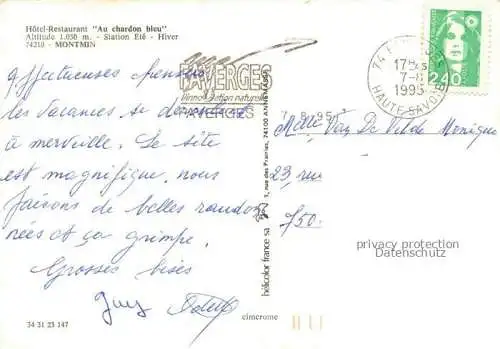 Hôtel-Restaurant "Au chardon bleu"
Altitude 1.050 m. - Station Eté - Hiver
74210 - MONTMIN
affectueuses pensées
les vacances se déroulent
à merveille. Le site
est magnifique, nous
faisons de belles randon
nées et ça grimpe.
Grosses bises
Guy Odette
34 31 23 147
cimerome
FAVERGES
l'innovation naturelle
FAVERGES
hélicolor france sa
rue des Prairies, 74100 ANNEMASSE
74
17H
7-8
1995
HAUTE-SAVOIE
2,40
Melle Van De Velde Monique
23, rue
750
privacy protection
Datenschutz